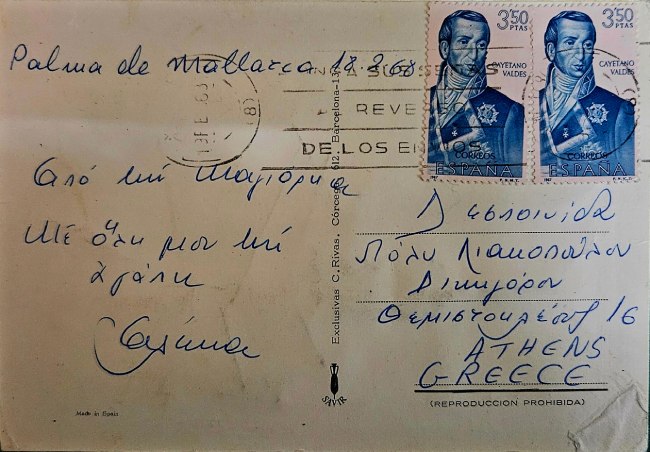 Palma de Mallorca 18-2-68
Από την Μαγιόρκα
Μέ όλη μου τήν
αγάπη
3'50
PTAS
CAYETANO
VALDES
CORREOS
ESPAÑA
3'50
PTAS
CAYETANO
VALDES
CORREOS
ESPAÑA
DE LOS
Exclusivas C. Rivas, Córcega
Barcelona
Δεσποινίδα
Πόλυ Λιακοπούλου
Δικηγόρον
Θεμιστοκλέους 16
ATHENS
GREECE
(REPRODUCCION PROHIBIDA)
SAVIR
Made in Espain